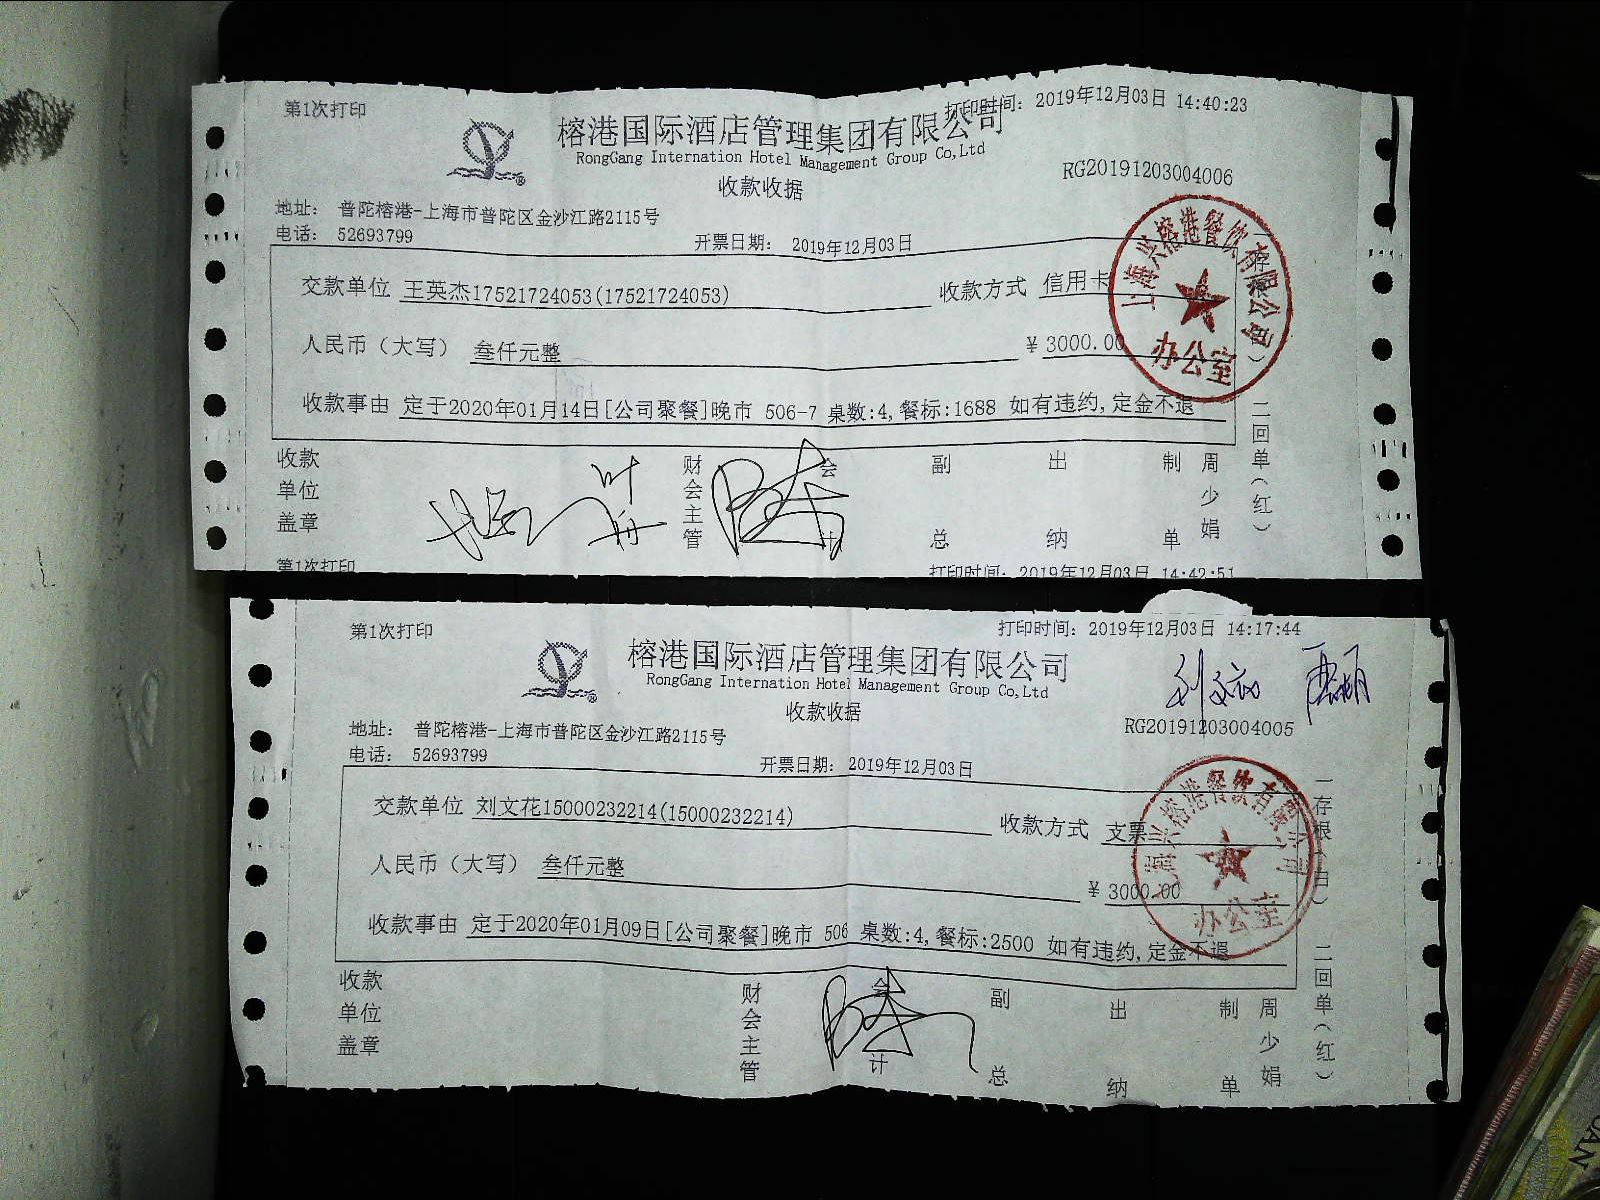 第1次打印
打印时间: 2019年12月03日 14:40:23
榕港国际酒店管理集团有限公司
RongGang Internation Hotel Management Group Co,Ltd
RG20191203004006
收款收据
地址: 普陀榕港-上海市普陀区金沙江路2115号
电话: 52693799
开票日期: 2019年12月03日
交款单位 王英杰17521724053(17521724053)
收款方式 信用卡
人民币（大写） 叁仟元整
¥ 3000.00
收款事由 定于2020年01月14日[公司聚餐]晚市 506-7 桌数:4,餐标:1688 如有违约,定金不退
上海兴榕港餐饮有限公司
办公室
二回单（红）
收款单位盖章
财会主管
会计
副总
出纳
制单
周少娟
第1次打印
打印时间: 2019年12月03日 14:42:51
第1次打印
打印时间: 2019年12月03日 14:17:44
榕港国际酒店管理集团有限公司
RongGang Internation Hotel Management Group Co,Ltd
收款收据
RG20191203004005
地址: 普陀榕港-上海市普陀区金沙江路2115号
电话: 52693799
开票日期: 2019年12月03日
交款单位 刘文花15000232214(15000232214)
收款方式 支票
人民币（大写） 叁仟元整
¥ 3000.00
收款事由 定于2020年01月09日[公司聚餐]晚市 506 桌数:4,餐标:2500 如有违约,定金不退
上海兴榕港餐饮有限公司
办公室
一存根（白）
二回单（红）
收款单位盖章
财会主管
会计
副总
出纳
制单
周少娟